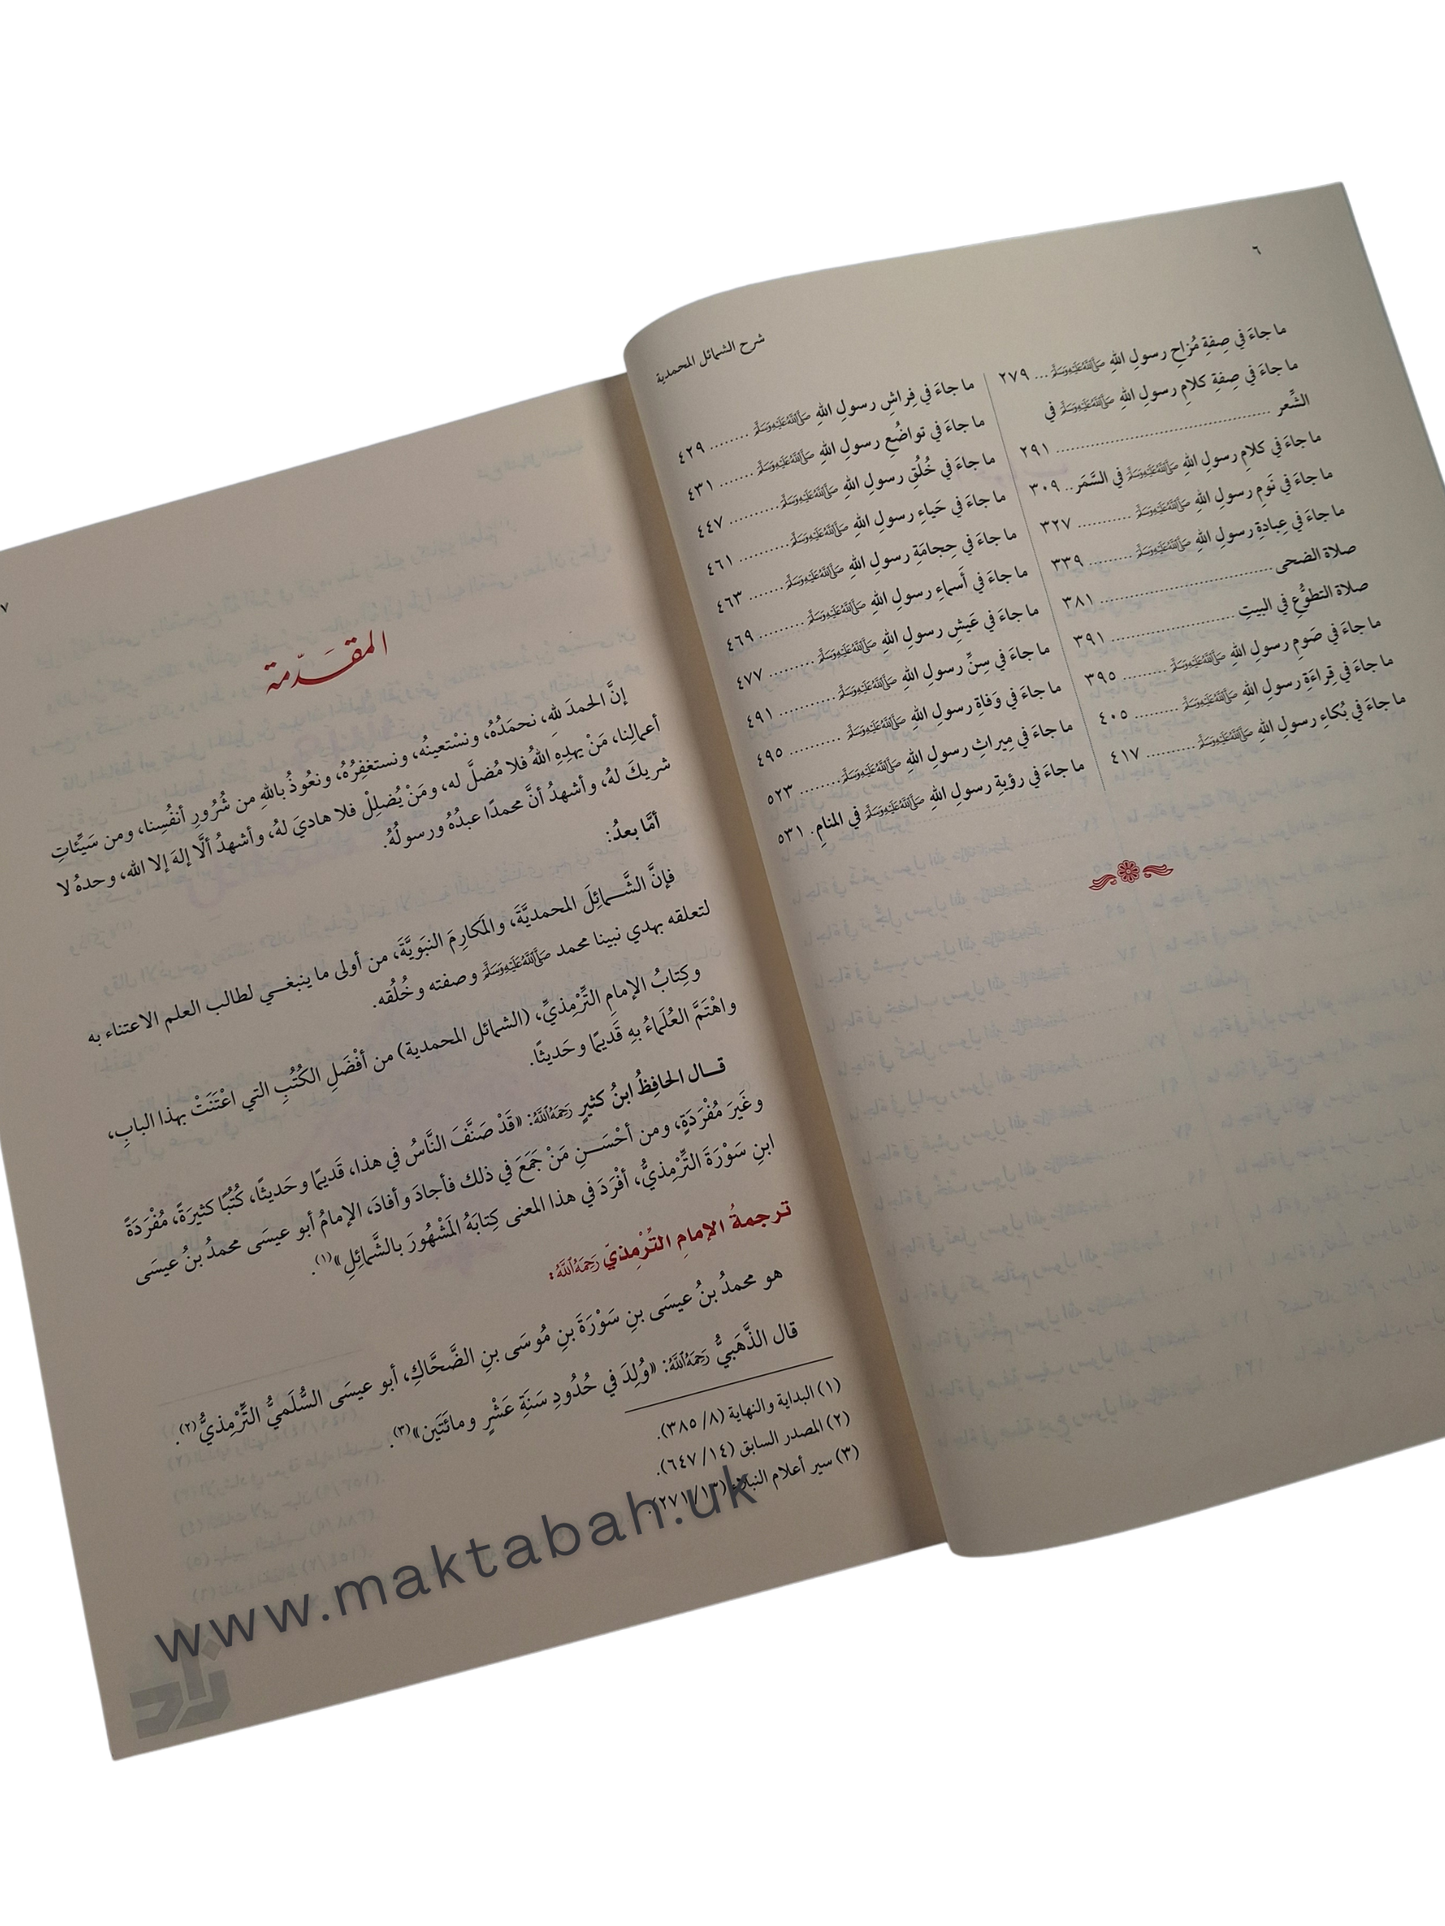 ٦
شرح الشمائل المحمدية
ما جاءَ في صِفةِ مُزاحِ رسولِ اللهِ ﷺ ... ٢٧٩
ما جاءَ في صِفةِ كلامِ رسولِ اللهِ ﷺ في
الشِّعر ... ٢٩١
ما جاءَ في كلامِ رسولِ اللهِ ﷺ في السَّمَر .. ٣٠٩
ما جاءَ في نَومِ رسولِ اللهِ ﷺ ... ٣٢٧
ما جاءَ في عِبادةِ رسولِ اللهِ ﷺ ... ٣٣٩
صلاة الضحى ... ٣٨١
صلاة التطوُّعِ في البيتِ ... ٣٩١
ما جاءَ في صَومِ رسولِ اللهِ ﷺ ... ٣٩٥
ما جاءَ في قِراءَةِ رسولِ اللهِ ﷺ ... ٤٠٥
ما جاءَ في بُكاءِ رسولِ اللهِ ﷺ ... ٤١٧
ما جاءَ في فِراشِ رسولِ اللهِ ﷺ ... ٤٢٩
ما جاءَ في تواضُعِ رسولِ اللهِ ﷺ ... ٤٣١
ما جاءَ في خُلُقِ رسولِ اللهِ ﷺ ... ٤٤٧
ما جاءَ في حَياءِ رسولِ اللهِ ﷺ ... ٤٦١
ما جاءَ في حِجامَةِ رسولِ اللهِ ﷺ ... ٤٦٣
ما جاءَ في أَسماءِ رسولِ اللهِ ﷺ ... ٤٦٩
ما جاءَ في عَيشِ رسولِ اللهِ ﷺ ... ٤٧٧
ما جاءَ في سِنِّ رسولِ اللهِ ﷺ ... ٤٩١
ما جاءَ في وَفاةِ رسولِ اللهِ ﷺ ... ٤٩٥
ما جاءَ في مِيراثِ رسولِ اللهِ ﷺ ... ٥٢٣
ما جاءَ في رؤيةِ رسولِ اللهِ ﷺ في المنامِ . ٥٣١
٧
المقدّمة
إنَّ الحمدَ للهِ، نحمَدُهُ، ونسْتعينُه، ونستغفِرُهُ، ونعُوذُ باللهِ من شُرُورِ أنفُسِنا، ومن سَيِّئاتِ
أعمالِنا، مَنْ يهدِهِ اللهُ فلا مُضلَّ له، ومَنْ يُضلِلْ فلا هاديَ لهُ، وأشهدُ ألَّا إلهَ إلا الله، وحدهُ لا
شريكَ لهُ، وأشهدُ أنَّ محمدًا عبدُهُ ورسولُهُ.
أمَّا بعدُ:
فإنَّ الشَّمائِلَ المحمديَّةَ، والمَكارِمَ النبَويَّةَ، من أولى ما ينبغي لطالب العلم الاعتناء به
لتعلقه بهدي نبينا محمد ﷺ وصفته وخُلُقه.
وكِتابُ الإمامِ التِّرْمِذيِّ، (الشمائل المحمدية) من أفْضَلِ الكُتُبِ التي اعْتَنَتْ بهذا البابِ،
واهْتَمَّ العُلَماءُ بهِ قَديمًا وحَديثًا.
قال الحافِظُ ابنُ كثيرٍ رَحِمَهُ اللَّهُ: «قَدْ صَنَّفَ النَّاسُ في هذا، قَديمًا وحَديثًا، كُتُبًا كثيرَةً، مُفْرَدَةً
وغَيرَ مُفْرَدَةٍ، ومن أحْسَنِ مَنْ جَمَعَ في ذلك فأجادَ وأفادَ، الإمامُ أبو عيسَى محمدُ بنُ عيسَى
ابنِ سَوْرَةَ التِّرْمِذيُّ، أفْرَدَ في هذا المعنى كِتابَهُ المَشْهُورَ بالشَّمائِلِ»(١).
ترجمةُ الإمامِ التِّرْمِذيّ رَحِمَهُ اللَّهُ:
هو محمدُ بنُ عيسَى بنِ سَوْرَةَ بنِ مُوسَى بنِ الضَّحَّاكِ، أبو عيسَى السُّلَميُّ التِّرْمِذيُّ(٢).
قال الذَّهَبيُّ رَحِمَهُ اللَّهُ: «وُلِدَ في حُدُودِ سَنَةِ عَشْرٍ ومائَتَين»(٣).
(١) البداية والنهاية (٨/ ٣٨٥).
(٢) المصدر السابق (١٤/ ٦٤٧).
(٣) سير أعلام النبلاء (١٣/ ٢٧١).
www.maktabah.uk
زاد